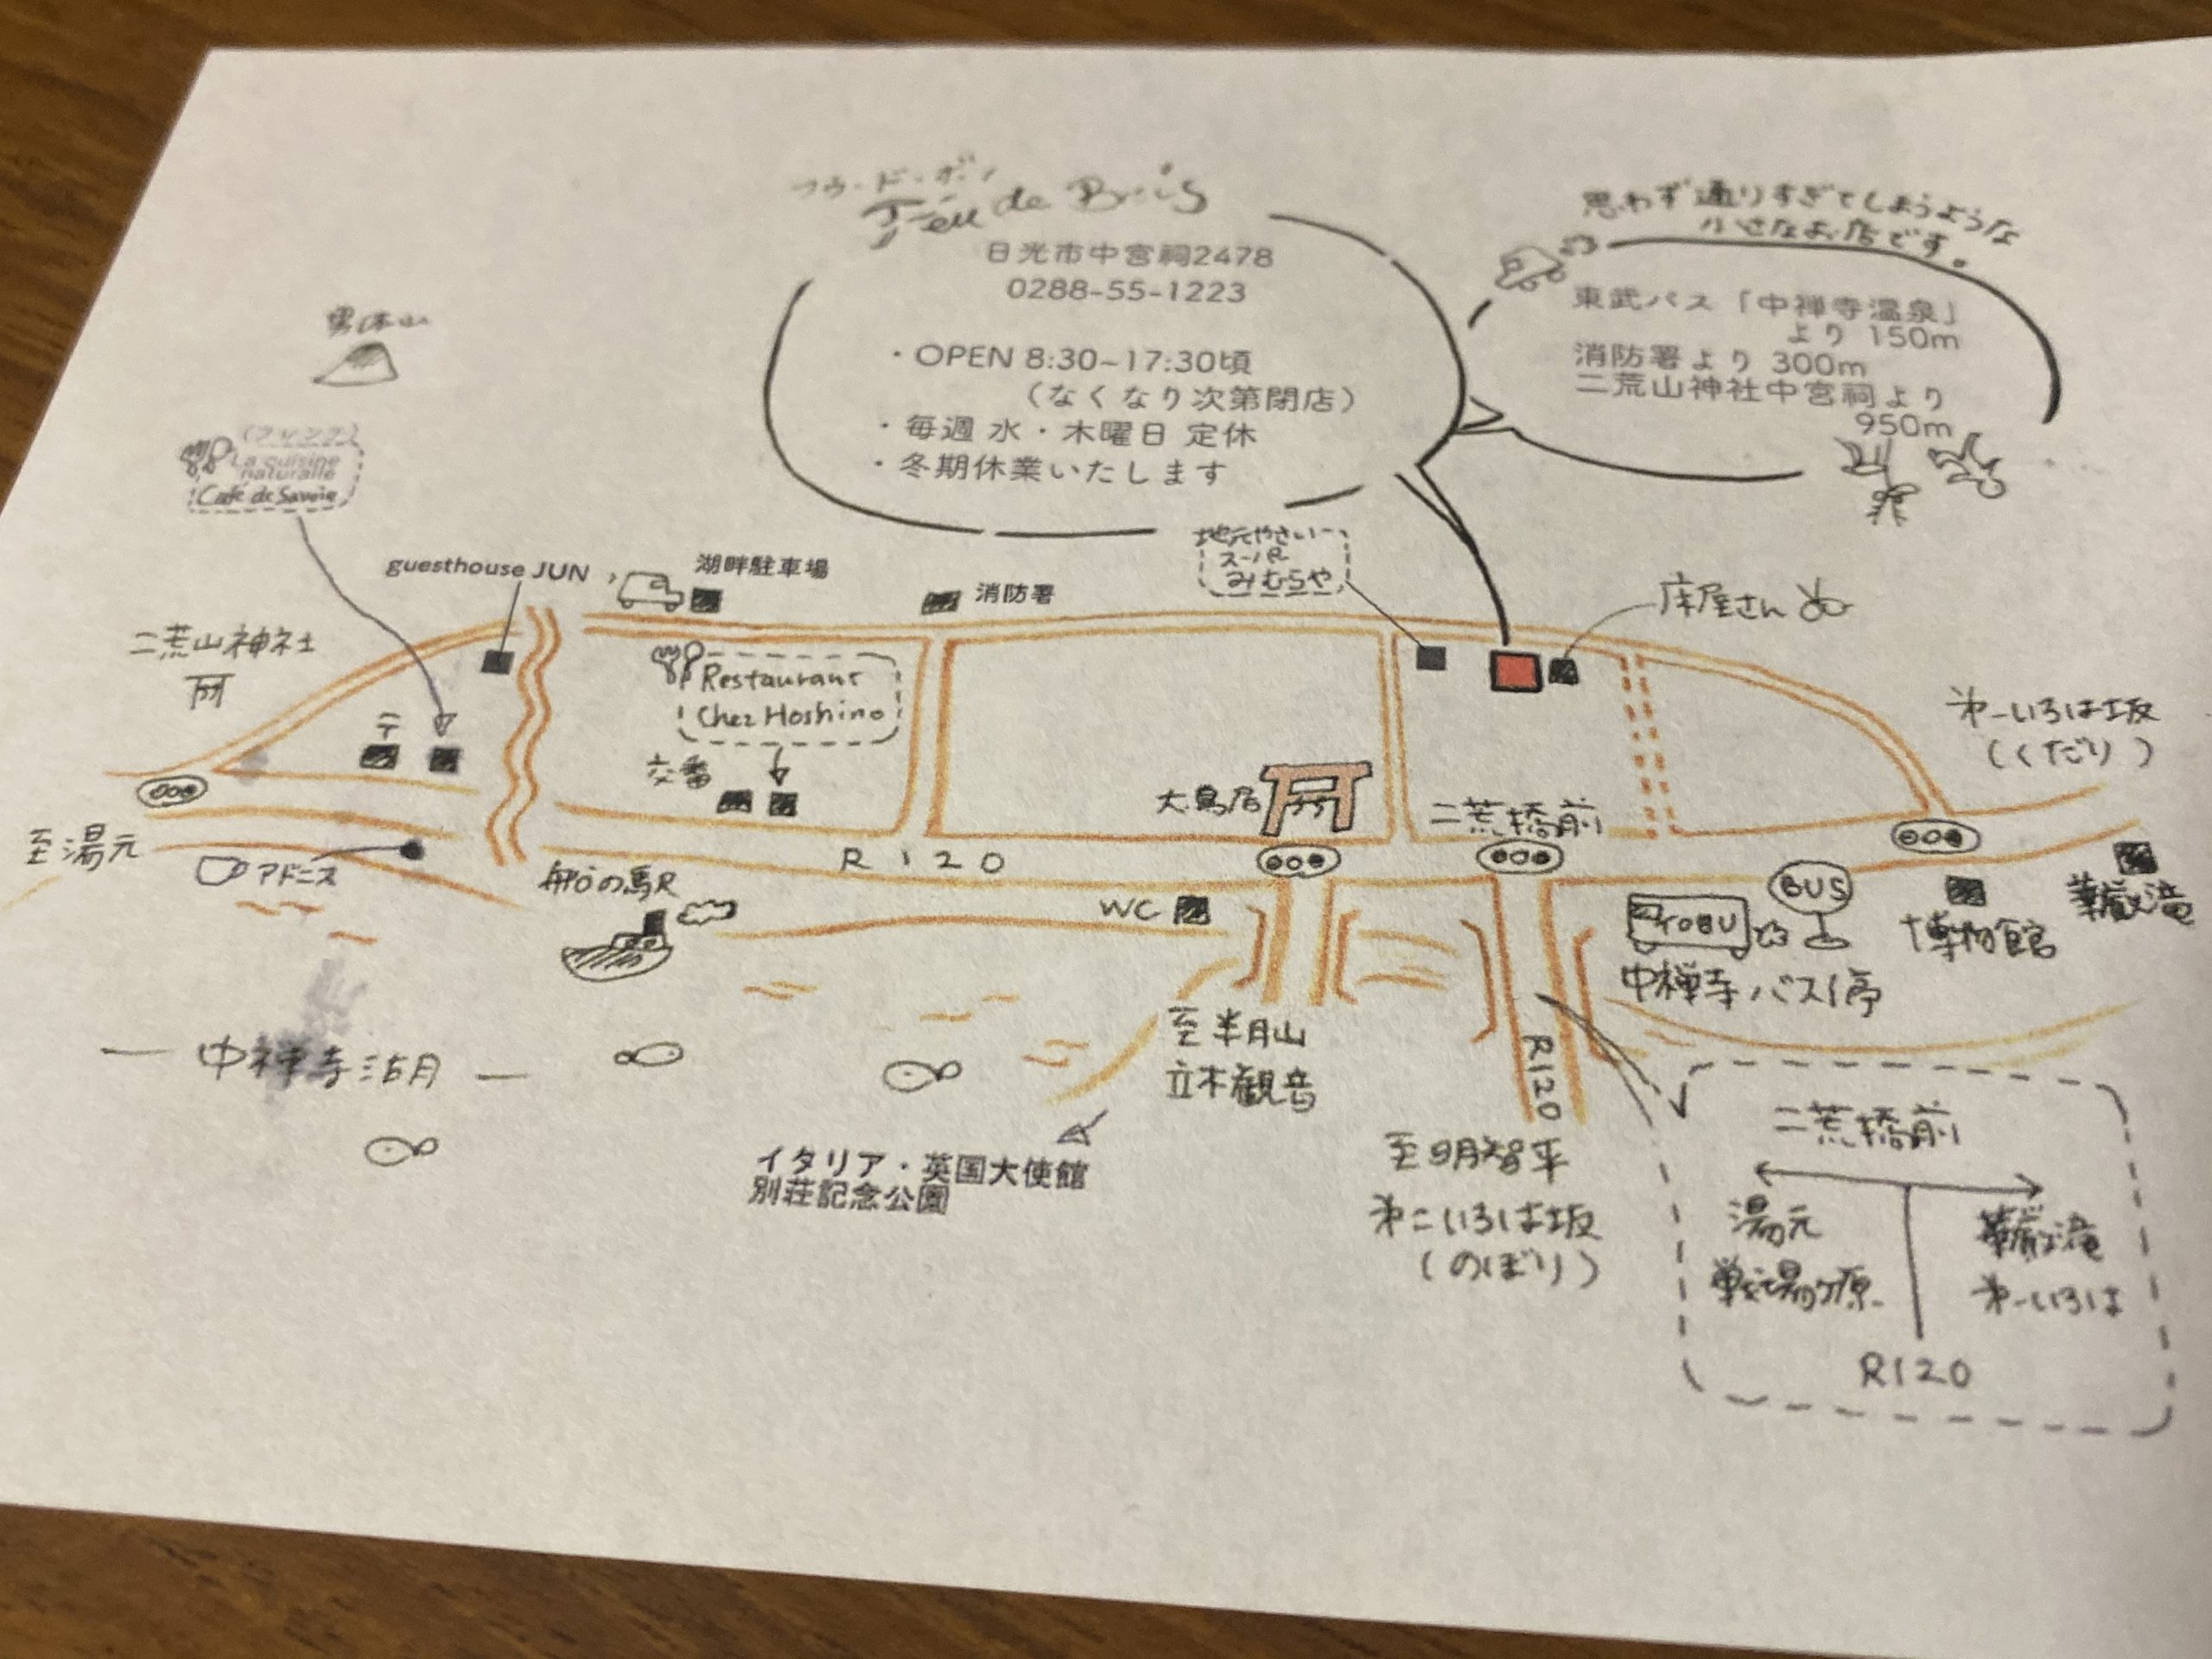 フゥ・ド・ボワ
Feu de Bois
日光市中宮祠2478
0288-55-1223
・OPEN 8:30~17:30頃
(なくなり次第閉店)
・毎週 水・木曜日 定休
・冬期休業いたします
思わず通りすぎてしまうような
小さなお店です。
東武バス「中禅寺温泉」
より 150m
消防署より 300m
二荒山神社中宮祠より
950m
男体山
La cuisine
naturalle
Café de Savoie
guesthouse JUN
湖畔駐車場
消防署
地元やさい
スーパー
みむらや
床屋さん
二荒山神社
〒
Restaurant
Chez Hoshino
交番
大鳥居
二荒橋前
第一いろは坂
(くだり)
至湯元
アドニス
船の駅
R120
WC
TOBU
BUS
中禅寺バス停
博物館
華厳の滝
中禅寺湖
至半月山
立木観音
R120
イタリア・英国大使館
別荘記念公園
至明智平
第二いろは坂
(のぼり)
二荒橋前
湯元
戦場ヶ原
華厳の滝
第一いろは
R120